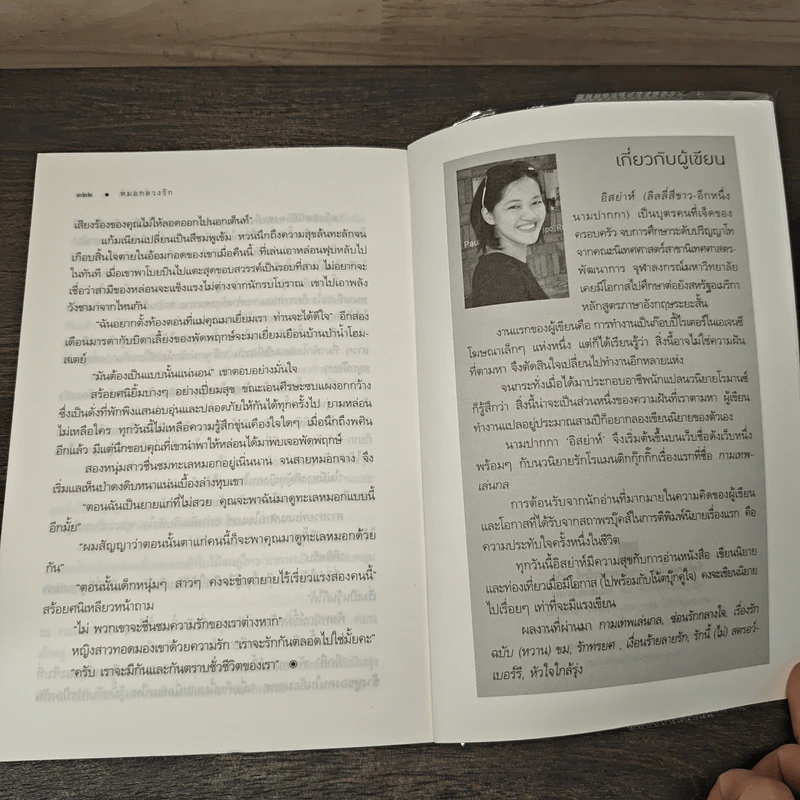 ๓๒๒ • หมอกลวงรัก
เสียงร้องของคุณไม่ให้ลอดออกไปนอกเต็นท์"
แก้มเนียนเปลี่ยนเป็นสีชมพูเข้ม หวนนึกถึงความสุขล้นทะลักจน
เกือบสิ้นใจตายในอ้อมกอดของเขาเมื่อคืนนี้ ที่เล่นเอาหล่อนฟุบหลับไป
ในทันที เมื่อเขาพาโบยบินไปแตะสุดขอบสวรรค์เป็นรอบที่สาม ไม่อยากจะ
เชื่อว่าสามีของหล่อนจะแข็งแรงไม่ต่างจากนักรบโบราณ เขาไปเอาพลัง
วังชามาจากไหนกัน
"ฉันอยากตั้งท้องตอนที่แม่คุณมาเยี่ยมเรา ท่านจะได้ดีใจ" อีกสอง
เดือนมารดากับบิดาเลี้ยงของพัดพฤกษ์จะมาเยี่ยมเยือนบ้านป่าน้ำโฮม-
สเตย์
"มันต้องเป็นแบบนั้นแน่นอน" เขาตอบอย่างมั่นใจ
สร้อยศนิยิ้มบางๆ อย่างเปี่ยมสุข ขณะเอนศีรษะซบแผงอกกว้าง
ซึ่งเป็นดั่งที่พักพิงแสนอบอุ่นและปลอดภัยให้กันได้ทุกครั้งไป ยามหล่อน
ไม่เหลือใคร ทุกวันนี้ไม่เหลือความรู้สึกขุ่นเคืองใจใดๆ เมื่อนึกถึงพศิน
อีกแล้ว มีแต่นึกขอบคุณที่เขานำพาให้หล่อนได้มาพบเจอพัดพฤกษ์
สองหนุ่มสาวชื่นชมทะเลหมอกอยู่เนิ่นนาน จนสายหมอกจาง จึง
เริ่มแลเห็นป่าดงดิบหนาแน่นเบื้องล่างหุบเขา
"ตอนฉันเป็นยายแก่ที่ไม่สวย คุณจะพาฉันมาดูทะเลหมอกแบบนี้
อีกมั้ย"
"ผมสัญญาว่าตอนนั้นตาแก่คนนี้ก็จะพาคุณมาดูทะเลหมอกด้วย
กัน"
"ตอนนั้นเด็กหนุ่มๆ สาวๆ คงจะขำตายายไร้เรี่ยวแรงสองคนนี้"
สร้อยศนิเหลียวหน้าถาม
"ไม่ พวกเขาจะชื่นชมความรักของเราต่างหาก"
หญิงสาวทอดมองเขาด้วยความรัก "เราจะรักกันตลอดไปใช่มั้ยคะ"
"ครับ เราจะมีกันและกันตราบชั่วชีวิตของเรา"
เกี่ยวกับผู้เขียน
อิสย่าห์ (ลิลลี่สีขาว-อีกหนึ่ง
นามปากกา) เป็นบุตรคนที่เจ็ดของ
ครอบครัว จบการศึกษาระดับปริญญาโท
จากคณะนิเทศศาสตร์สาขานิเทศศาสตร-
พัฒนาการ จุฬาลงกรณ์มหาวิทยาลัย
เคยมีโอกาสไปศึกษาต่อยังสหรัฐอเมริกา
หลักสูตรภาษาอังกฤษระยะสั้น
งานแรกของผู้เขียนคือ การทำงานเป็นก๊อปปี้ไรเตอร์ในเอเจนซี
โฆษณาเล็กๆ แห่งหนึ่ง แต่ก็ได้เรียนรู้ว่า สิ่งนี้อาจไม่ใช่ความฝัน
ที่ตามหา จึงตัดสินใจเปลี่ยนไปทำงานอีกหลายแห่ง
จนกระทั่งเมื่อได้มาประกอบอาชีพนักแปลนวนิยายโรมานซ์
ก็รู้สึกว่า สิ่งนี้น่าจะเป็นส่วนหนึ่งของความฝันที่เราตามหา ผู้เขียน
ทำงานแปลอยู่ประมาณสามปีก็อยากลองเขียนนิยายของตัวเอง
นามปากกา 'อิสย่าห์' จึงเริ่มต้นขึ้นบนเว็บชื่อดังเว็บหนึ่ง
พร้อมๆ กับนวนิยายรักโรแมนติกกุ๊กกิ๊กเรื่องแรกที่ชื่อ กามเทพ-
เล่นกล
การต้อนรับจากนักอ่านที่มากมายในความคิดของผู้เขียน
และโอกาสที่ได้รับจากสถาพรบุ๊คส์ในการตีพิมพ์นิยายเรื่องแรก คือ
ความประทับใจครั้งหนึ่งในชีวิต
ทุกวันนี้อิสย่าห์มีความสุขกับการอ่านหนังสือ เขียนนิยาย
และท่องเที่ยวเมื่อมีโอกาส (ไปพร้อมกับโน้ตบุ๊กคู่ใจ) คงจะเขียนนิยาย
ไปเรื่อยๆ เท่าที่จะมีแรงเขียน
ผลงานที่ผ่านมา กามเทพเล่นกล, ซ่อนรักกลางใจ, เรื่องรัก
ฉบับ (หวาน) ขม, รักทรยศ , เงื่อนร้ายลายรัก, รักนี้ (ไม่) สตรอว์-
เบอร์รี, หัวใจใกล้รุ่ง